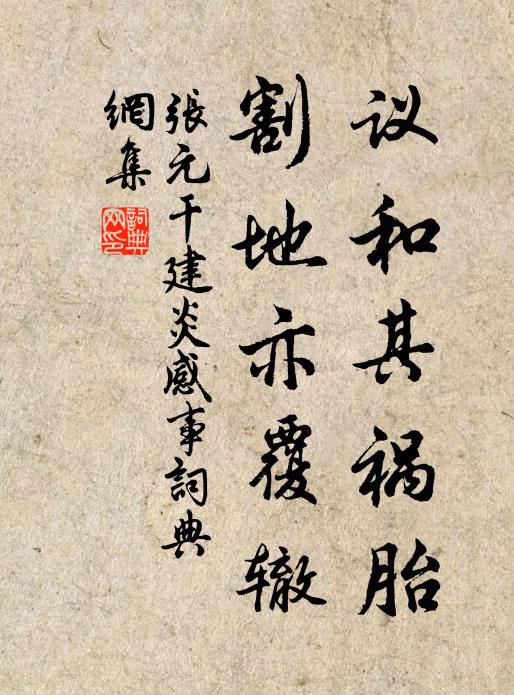 议和其祸胎
割地亦覆辙
張元干建炎感事詞典
網集
詞典网印